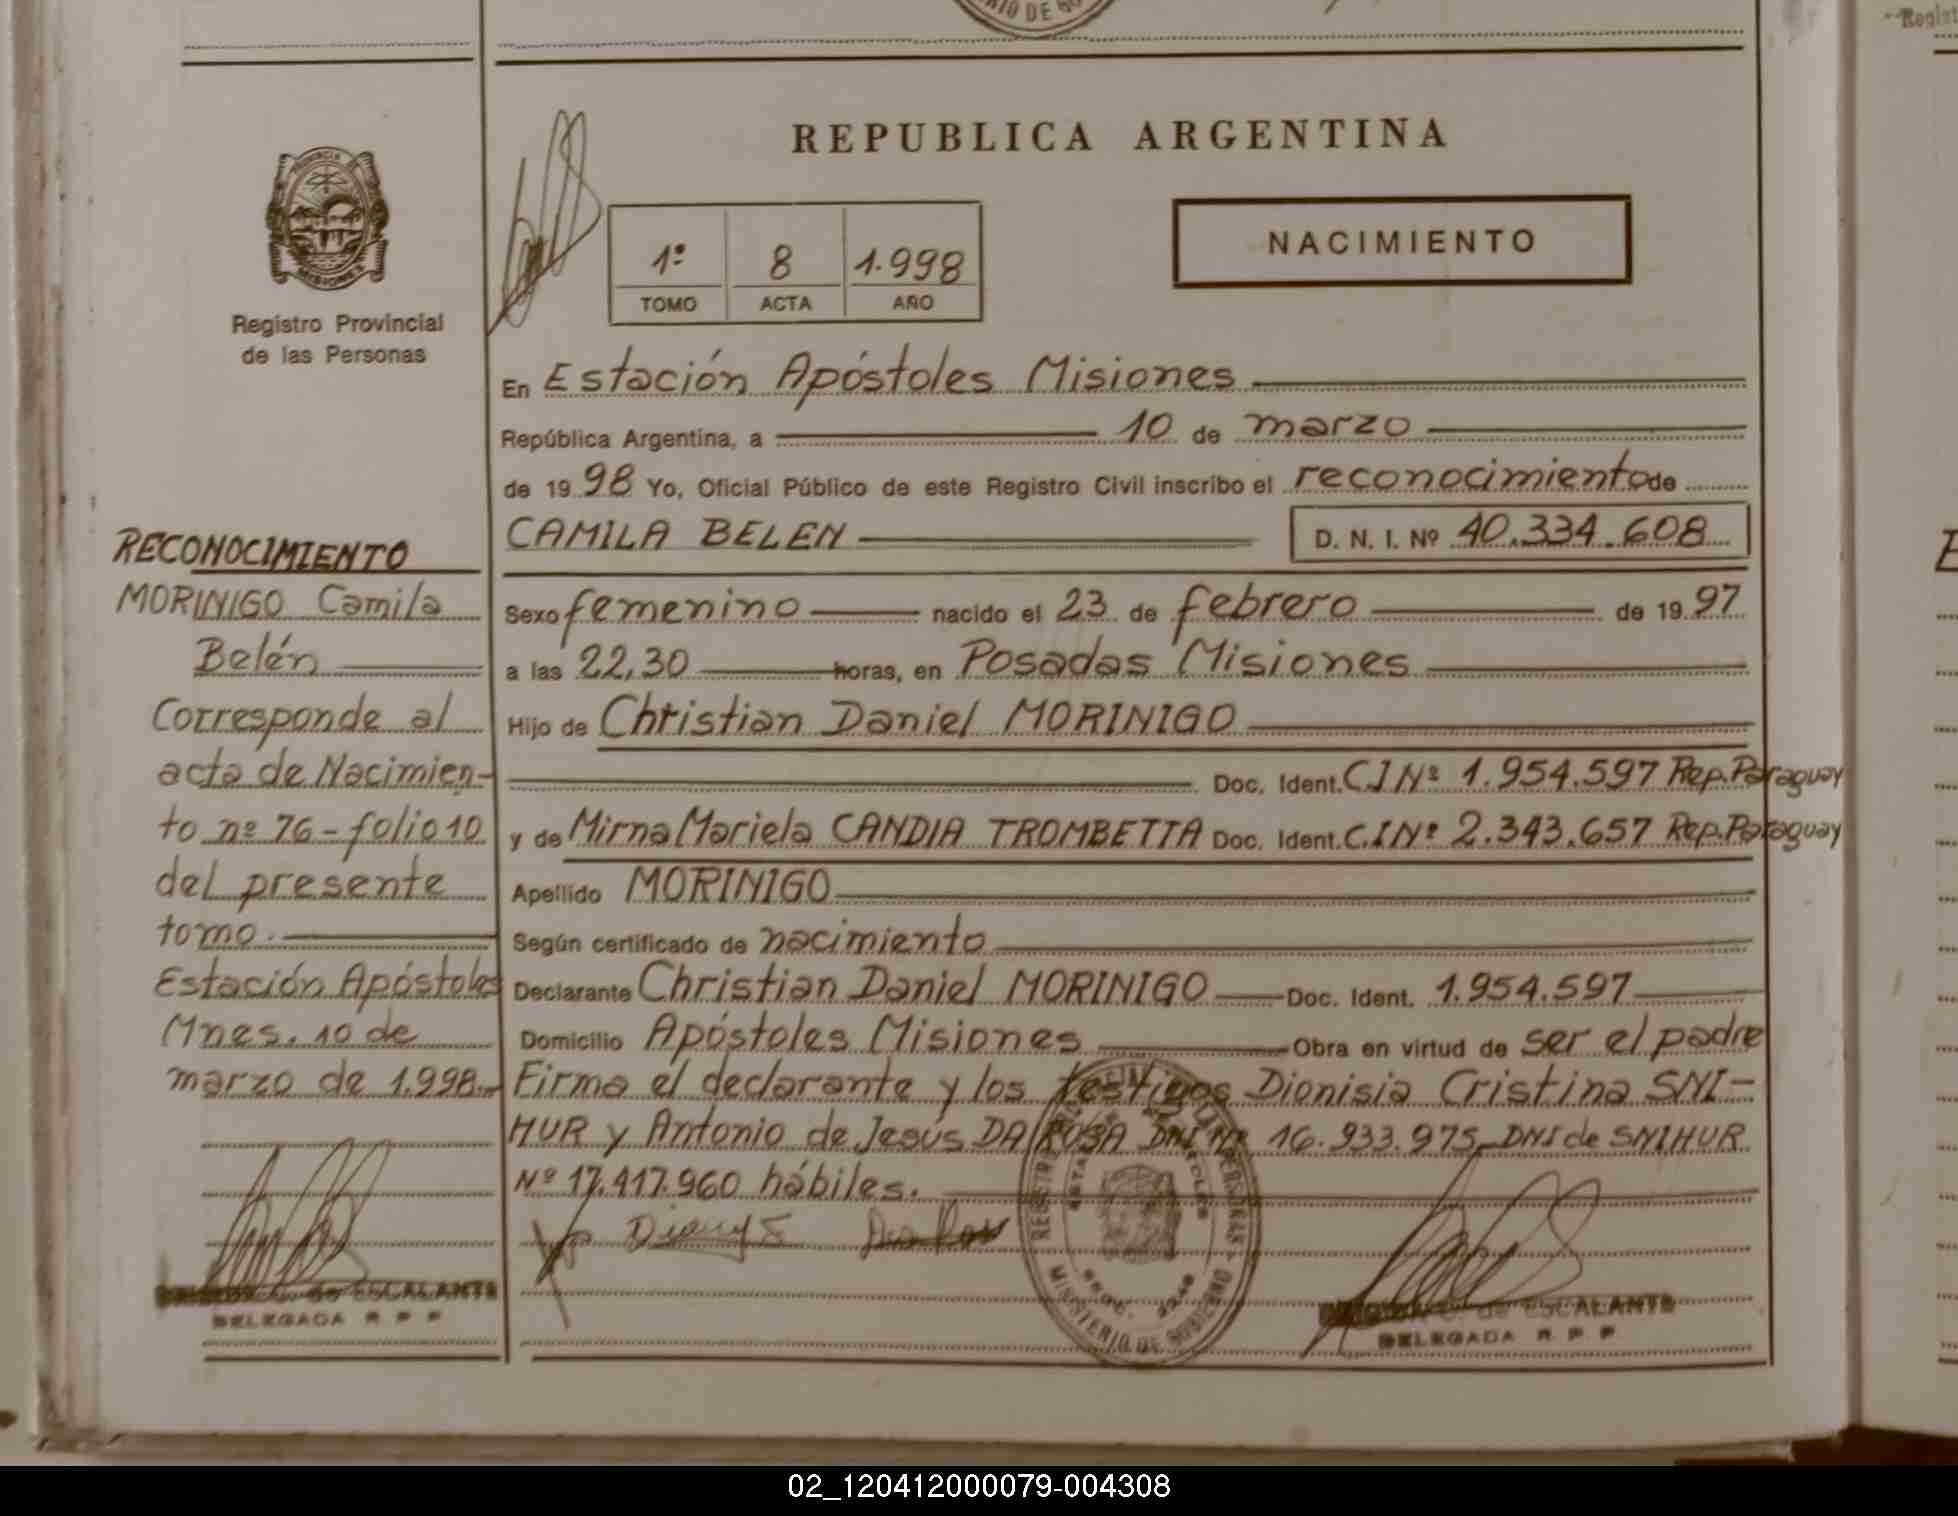 REPUBLICA ARGENTINA
NACIMIENTO
1º 8 1.998
TOMO ACTA AÑO
PROVINCIA DE
MISIONES
Registro Provincial
de las Personas
RECONOCIMIENTO
MORINIGO Camila
Belén
Corresponde al
acta de Nacimien-
to nº 76-folio 10
del presente
tomo.
Estación Apóstoles
Mnes. 10 de
marzo de 1.998.-
de ESCALANTE
DELEGADA R P P
En Estación Apóstoles Misiones
República Argentina, a 10 de marzo
de 1998 Yo, Oficial Público de este Registro Civil inscribo el reconocimiento de
CAMILA BELEN D. N. I. Nº 40.334.608
Sexo femenino nacido el 23 de febrero de 1997
a las 22,30 horas, en Posadas Misiones
Hijo de Christian Daniel MORINIGO
Doc. Ident. CI Nº 1.954.597 Rep. Paraguay
y de Mirna Mariela CANDIA TROMBETTA Doc. Ident. C.I Nº 2.343.657 Rep. Paraguay
Apellido MORINIGO
Según certificado de nacimiento
Declarante Christian Daniel MORINIGO Doc. Ident. 1.954.597
Domicilio Apóstoles Misiones Obra en virtud de ser el padre
Firma el declarante y los testigos Dionisia Cristina SNI-
HUR y Antonio de Jesús DA ROSA DNI Nº 16.933.975 DNI de SNIHUR
Nº 17.417.960 hábiles.
MINISTERIO DE GOBIERNO
de ESCALANTE
DELEGADA R P P
02_120412000079-004308